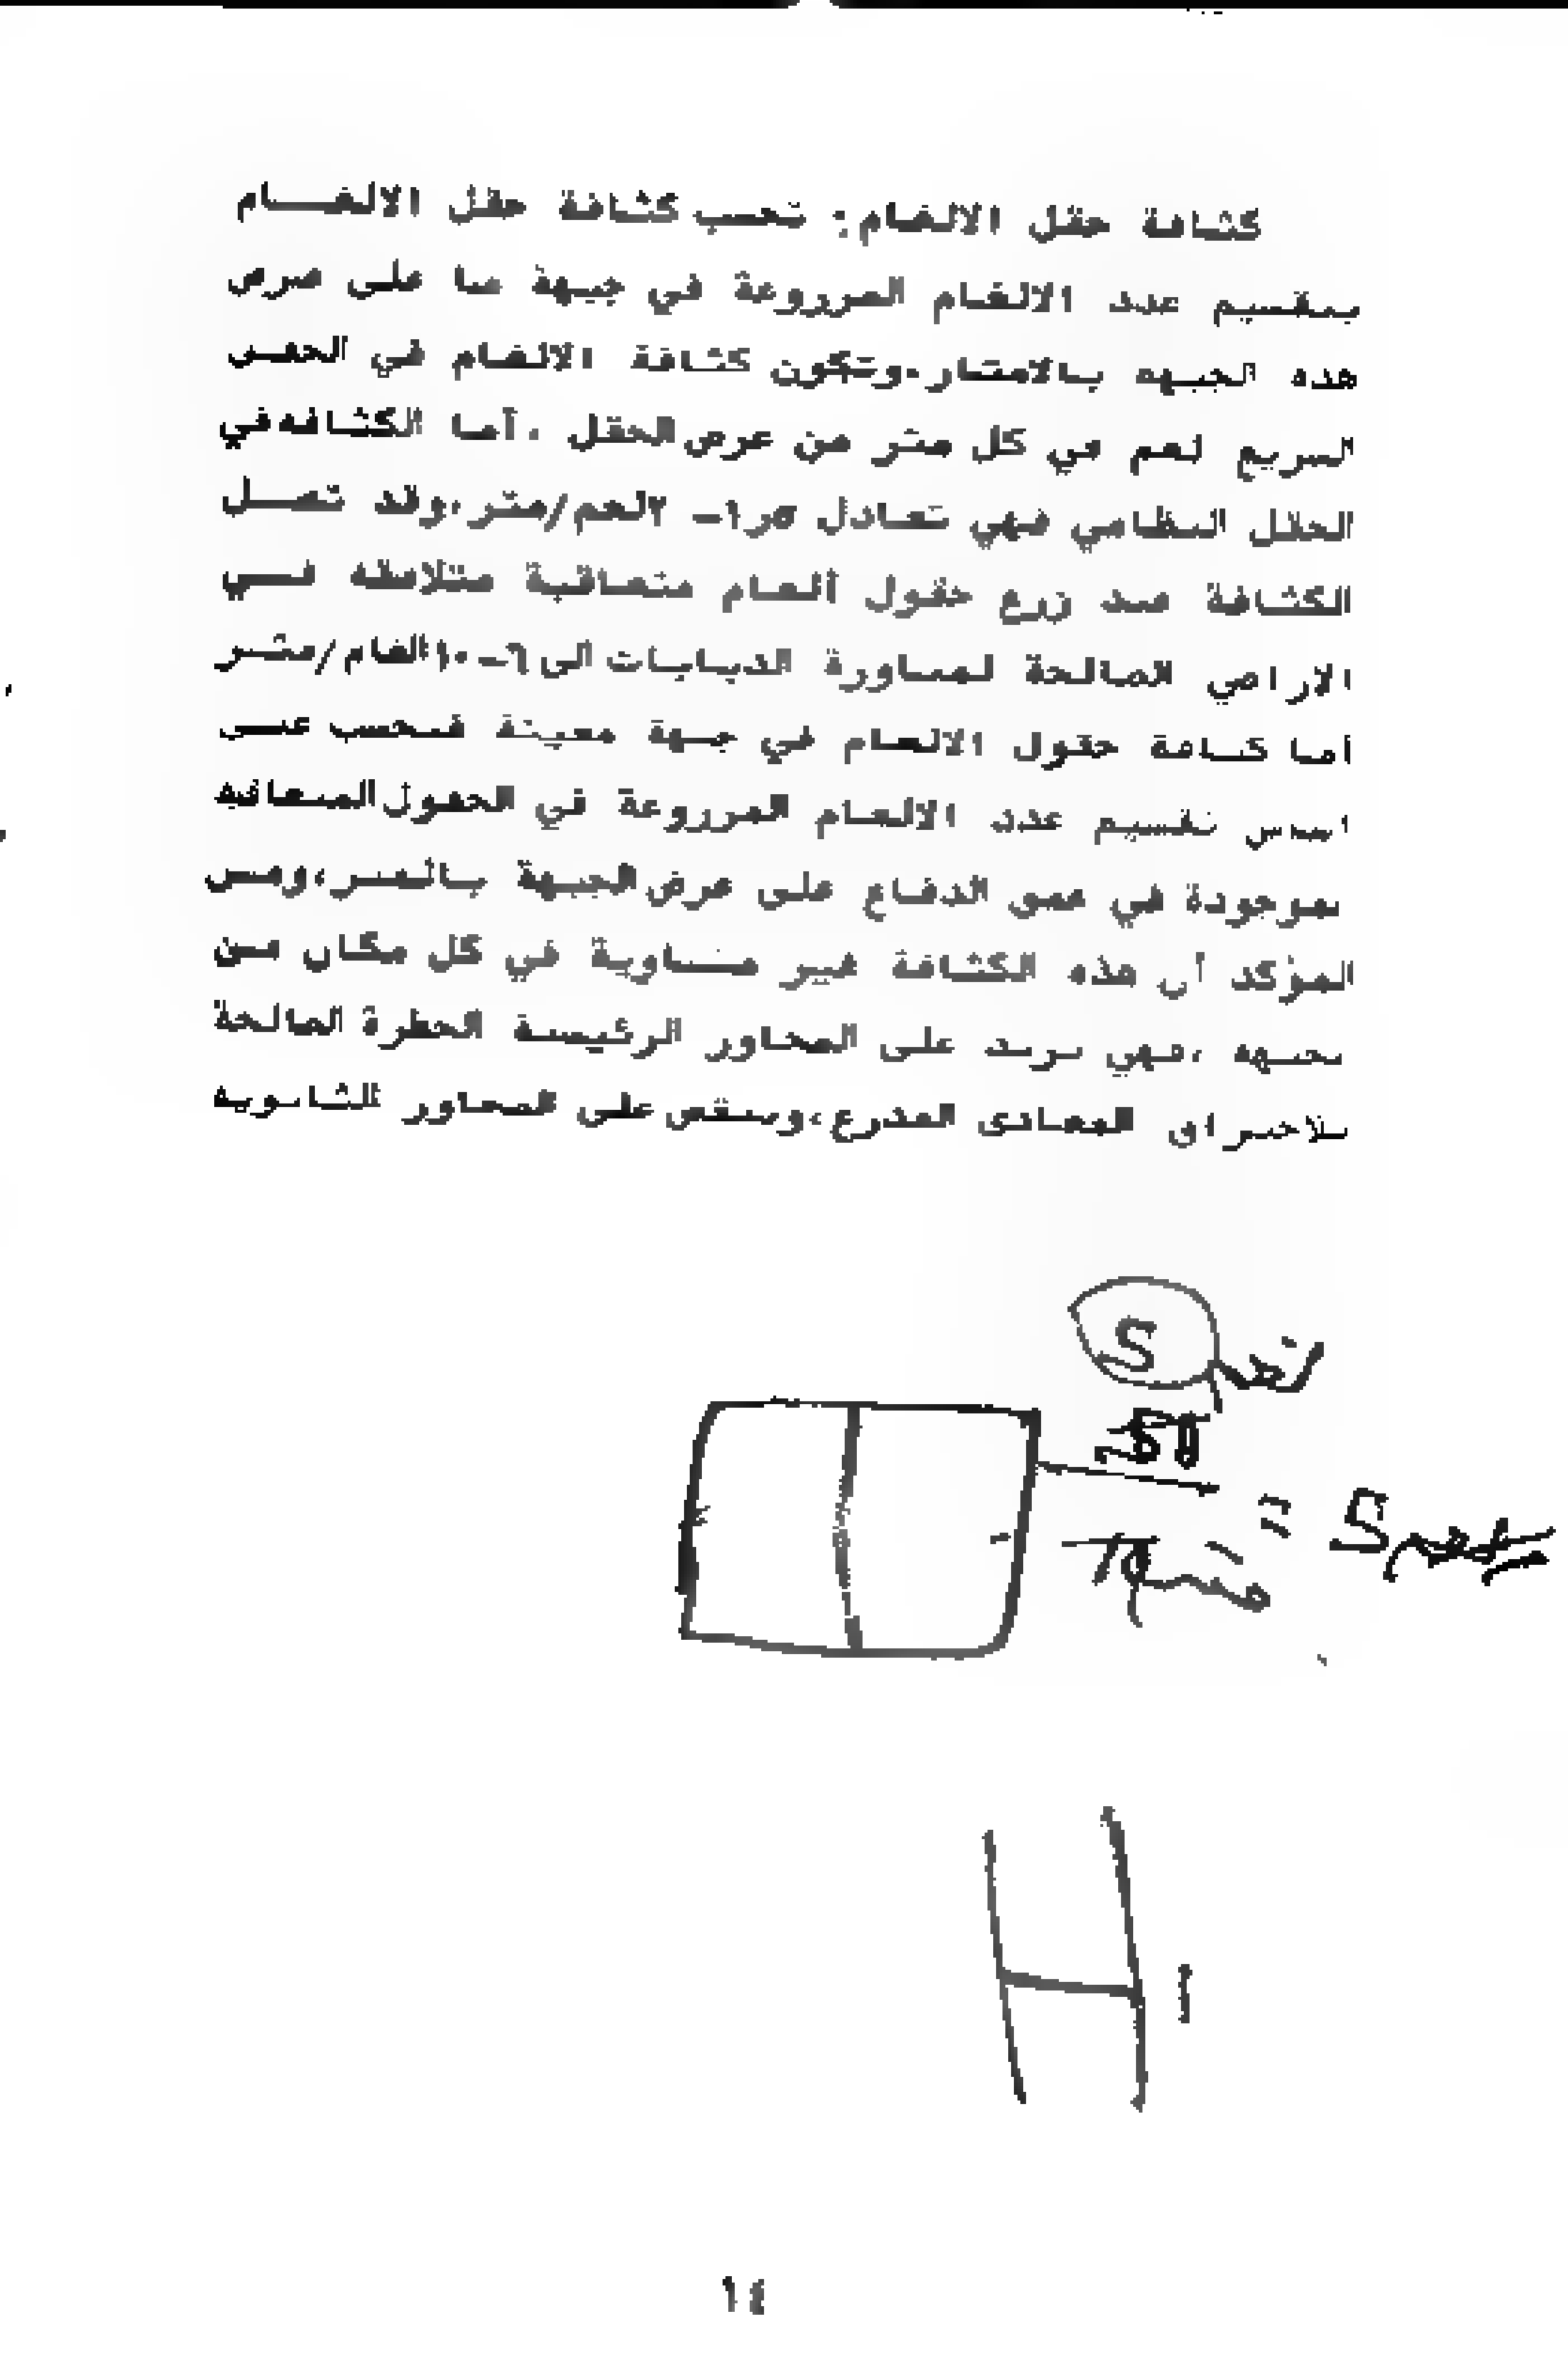 كثافة حقل الالغام: تحسب كثافة حقل الالغــــام
بتقسيم عدد الالغام المزروعة في جبهة ما على عرض
هذه الجبهه بالامتار.وتكون كثافة الالغام في الحقل
السريع لغم في كل متر من عرض الحقل .أما الكثافه في
الحقل النظامي فهي تعادل ٥ر١- ٢لغم/متر.وقد تصــل
الكثافة عند زرع حقول ألغام متعاقبة متلاصقه فــــي
الاراضي الصالحة لمناورة الدبابات الى ٦-١٠الغام/متــر
أما كثافة حقول الالغام في جبهة معينة فتحسب علــى
اساس تقسيم عدد الالغام المزروعة في الحقول المتعاقبه
الموجودة في عمق الدفاع على عرض الجبهة بالمتر،ومــن
المؤكد أن هذه الكثافة غير متساوية في كل مكان مــن
الجبهه ،فهي تزيد على المحاور الرئيسة الخطرة الصالحة
لاختراق المعادي المدرع،وتنقص على المحاور الثانويه
S لغم
50
= S
متر
١٤